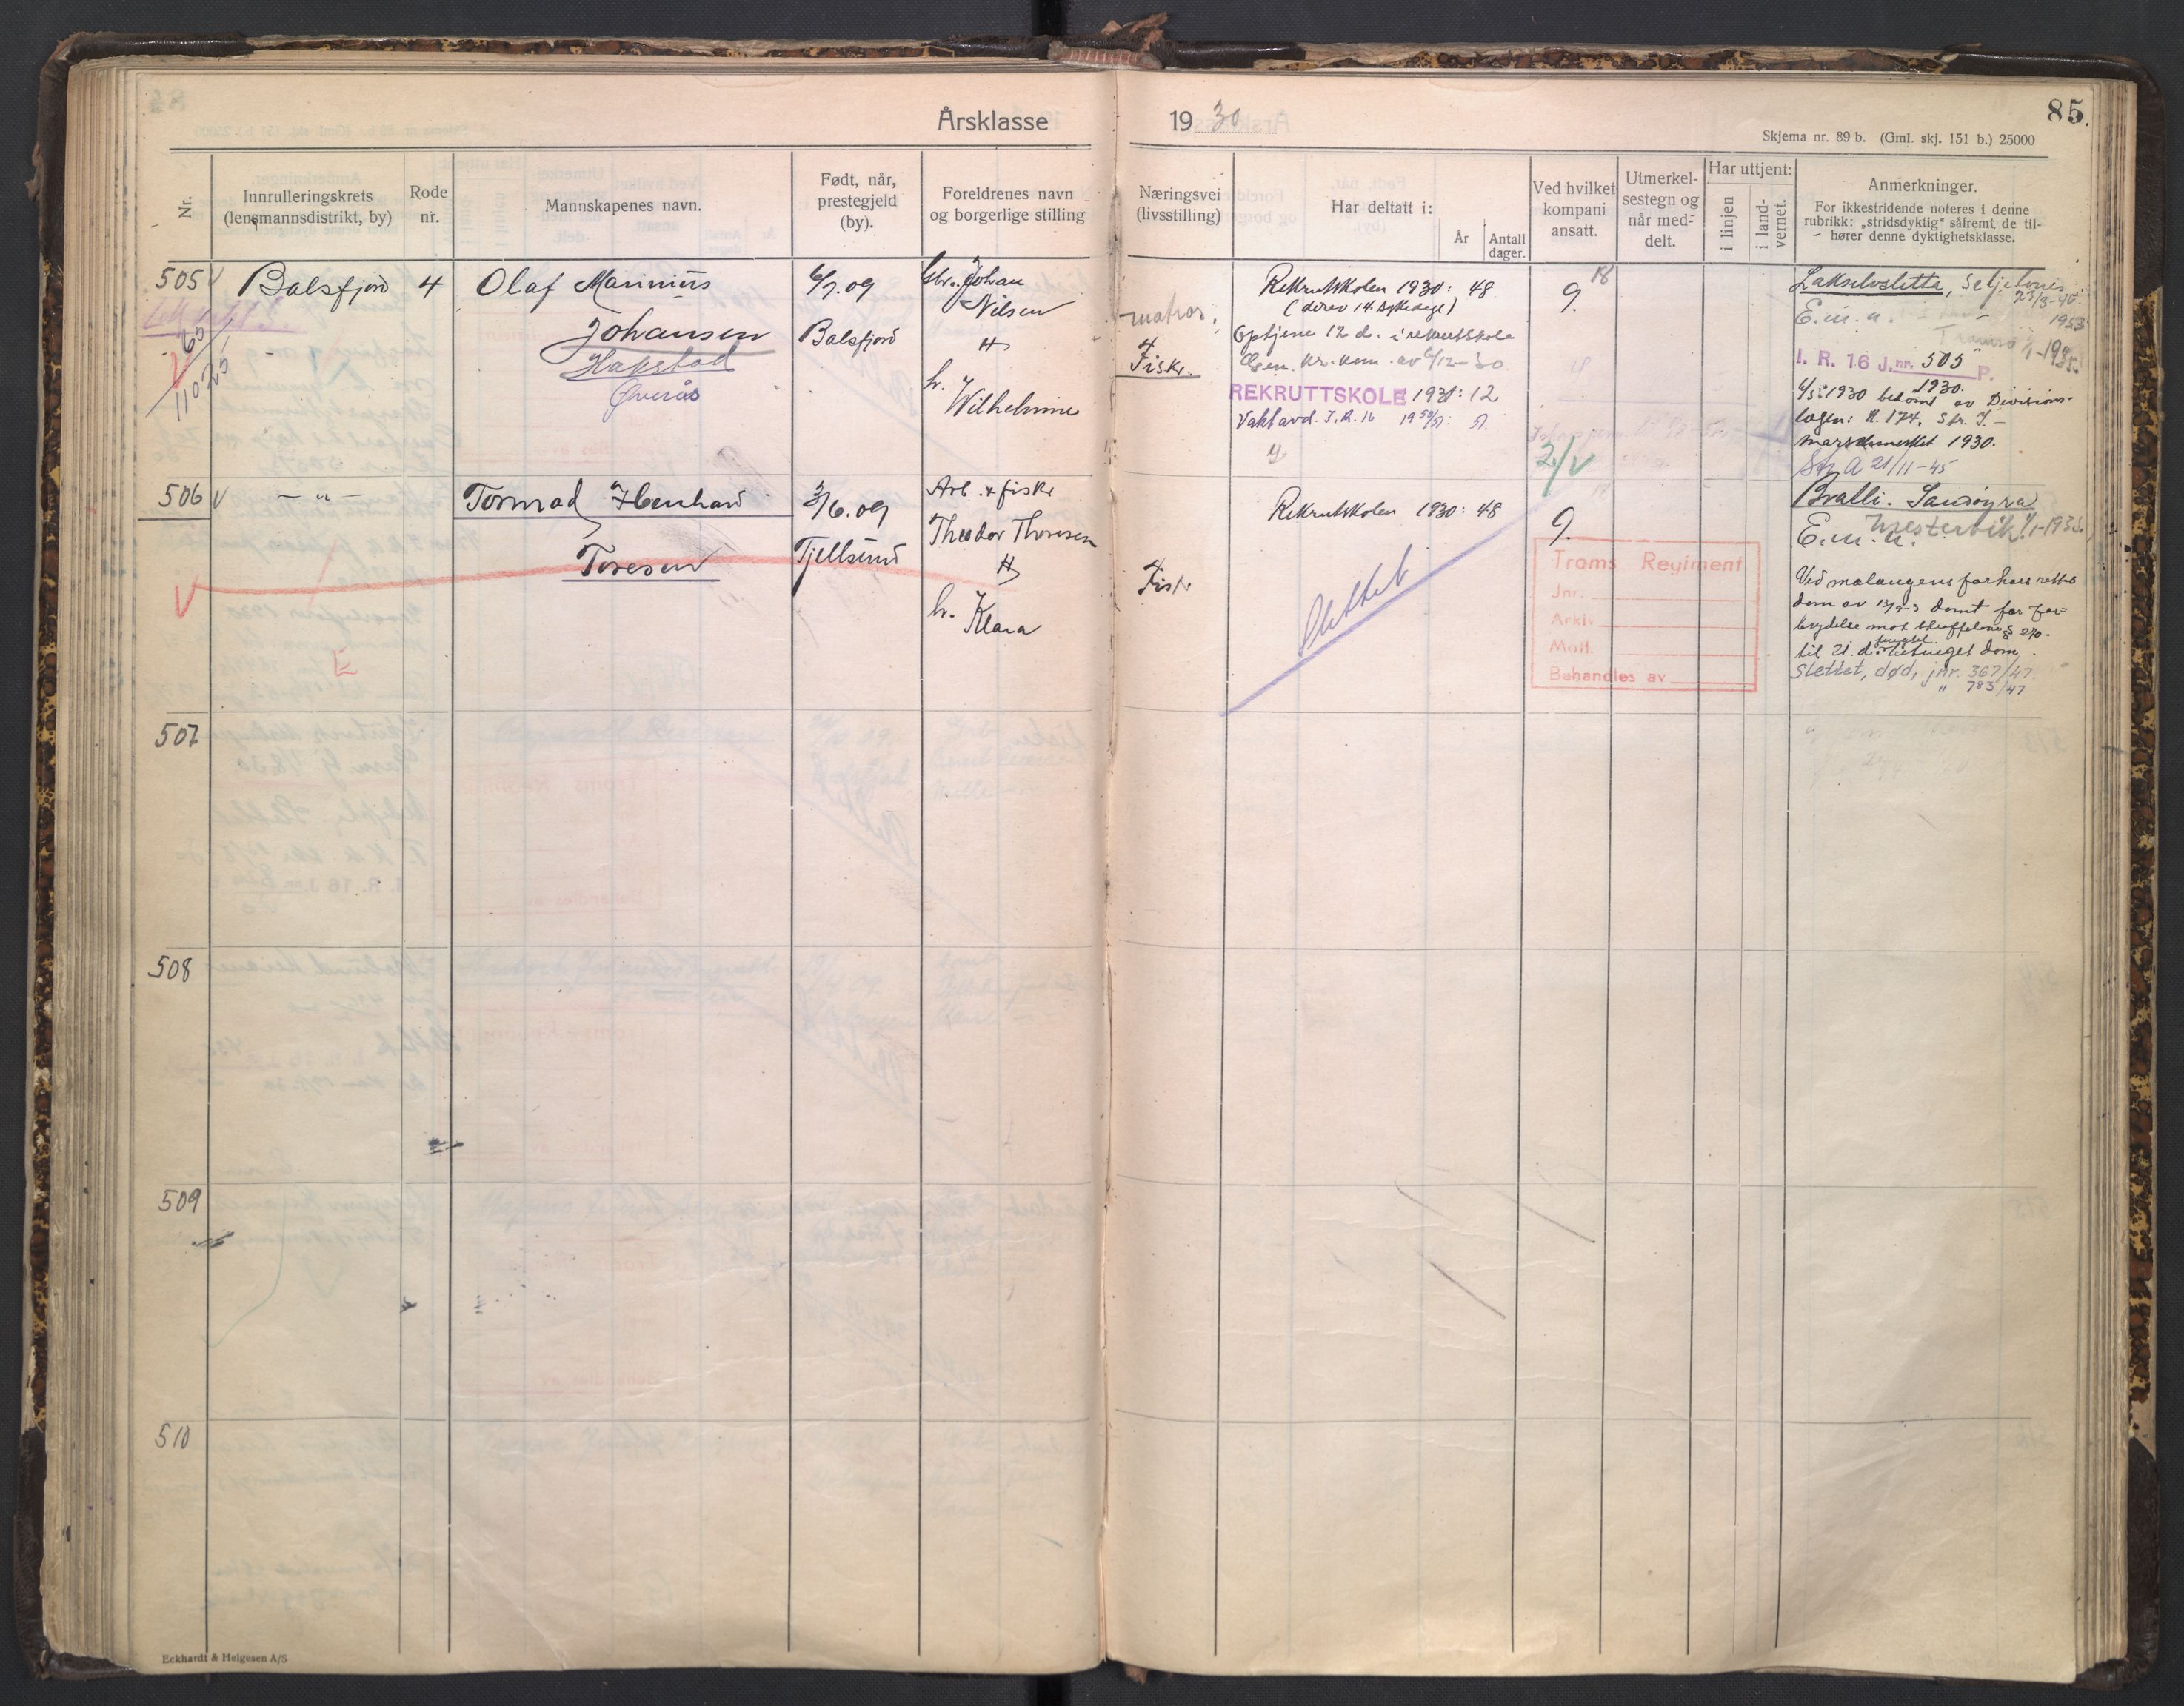 Årsklasse 1930
85.
Skjema nr. 89 b. (Gml. skj. 151 b.) 25000
Nr.
Innrulleringskrets
(lensmannsdistrikt, by)
Rode
nr.
Mannskapenes navn.
Født, når,
prestegjeld
(by).
Foreldrenes navn
og borgerlige stilling
Næringsvei
(livsstilling)
Har deltatt i:
År
Antall
dager.
Ved hvilket
kompani
ansatt.
Utmerkel-
sestegn og
når med-
delt.
Har uttjent:
i linjen
i land-
vernet.
Anmerkninger.
For ikkestridende noteres i denne
rubrikk: „stridsdyktig" såfremt de til-
hører denne dyktighetsklasse.
505 V
60
11025
Balsfjord
4
Olaf Marinius
Johansen
Hakstad
Øverås
6/7.09
Balsfjord
Gbr. Johan
Nilsen
H
h.
Wilhelmine
matros.
Fiskr.
Rekrutskolen 1930: 48
(derav 14 sykedage)
Optjene 12 d. i rekrutskole
Gen. kr. kom. av 6/12-30
REKRUTTSKOLE 1931: 12
Vaktavd. I.R. 16 1950/51: 51.
9.
18
2/V
Lakselvsletta, Seljelvnes
23/3-40
E.m.u.
1953
Tromsø 1/1-1935.
I. R. 16 J.nr. 505 P.
1930.
6/5 1930 bekomt av Divisions-
lægen: N. 174. Str. I.-
Marschmerket 1930.
Stz A 21/11-45
506 V
— " —
Tormod Ibenhard
Toresen
3/6.09
Tjellsund
Arb. & fiskr
Theodor Thoresen
H
h.
Klara
Fiskr
Rekrutskolen 1930: 48
Slettet
9.
Troms Regiment
Jnr.
Arkiv
Mott.
Behandles av
V
E
Bralli. Sandøyra
E.m.u. Mestervik 1/1-1935.
Ved Malangens forhørsretts
dom av 13/9-3 dømt for for=
brydelse mot straffelovens § 270-
til 21. d. fengsel. betinget dom.
Slettet, død, jnr. 367/47.
" 783/47
507
508
509
510
Eckhardt & Helgesen A/S